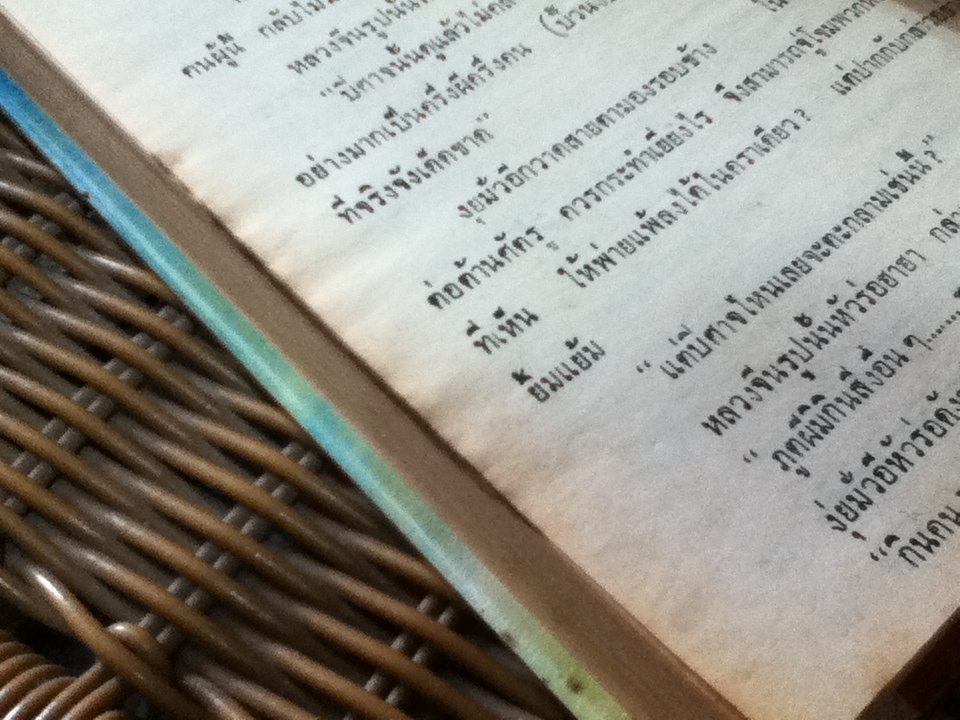 คนผู้นี้ กลับไม่
หลวงจีนรูปนั้น
"ปีศาจนั้นดุแล้วไม่
อย่างมากเป็นครึ่งผีครึ่งคน
ที่จริงจังเด็ดขาด"
งุยมั้วอีกวาดสายตามองรอบข้าง
ต่อต้านศัตรู ควรกระทำเยี่ยงไร จึงสามารถจู่โจมพวก
ที่เห็น ให้พ่ายแพ้ลงได้ในคราเดียว? แต่ปากกับ
ยิ้มแย้ม
"แต่ปีศาจไหนเลยจะตะกลามเช่นนี้?"
หลวงจีนรูปนั้นหัวร่อฮาฮา
" ภูตผีมิกินสิ่งอื่น ๆ.......
งุ่ยมั้วอีหัวร่อดัง
"กินคน